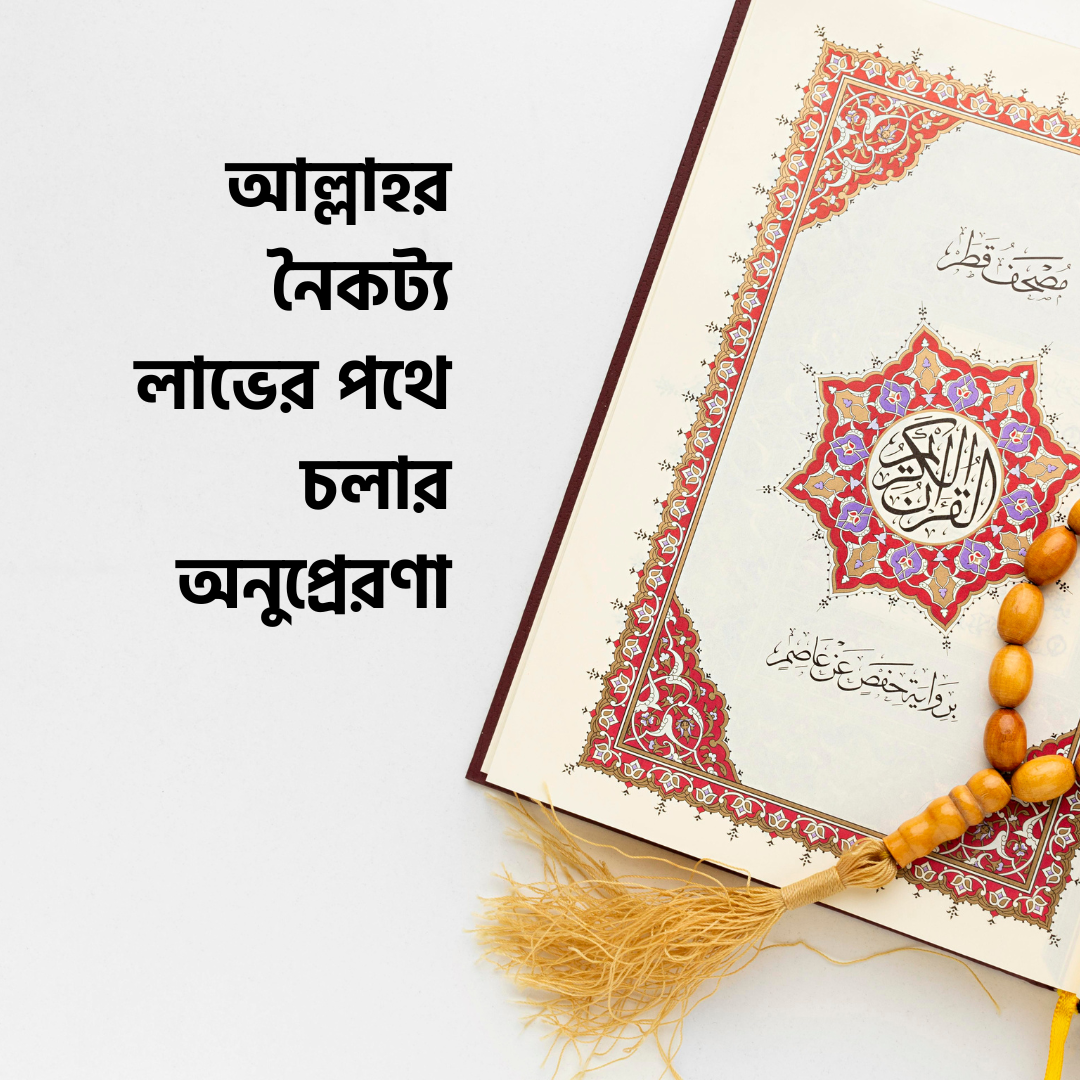 আল্লাহর
নৈকট্য
লাভের পথে
চলার
অনুপ্রেরণা
مصحف قطر
القرآن الكريم
برواية حفص عن عاصم